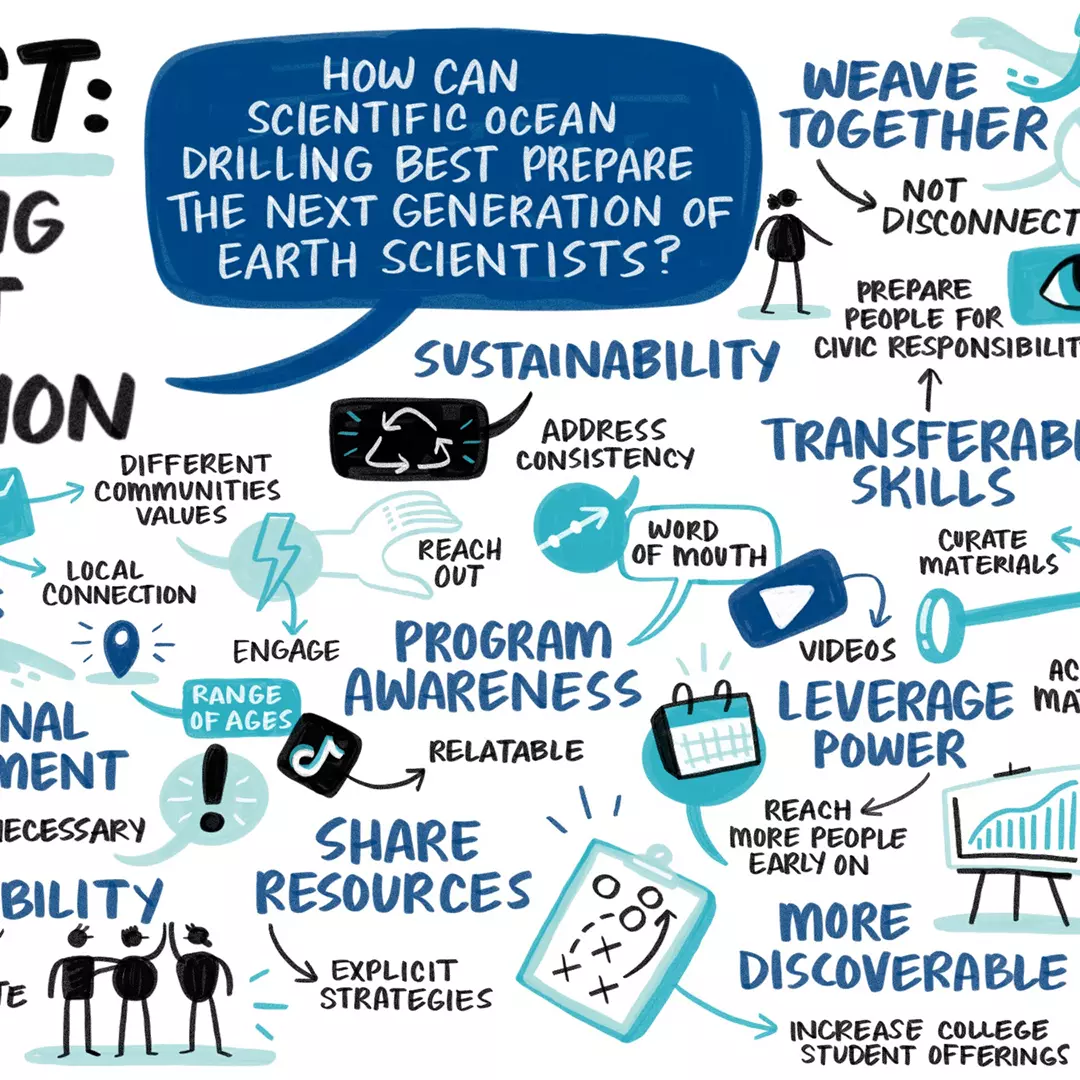 CT:
HOW CAN
SCIENTIFIC OCEAN
DRILLING BEST PREPARE
THE NEXT GENERATION OF
EARTH SCIENTISTS?
WEAVE
TOGETHER
NOT
DISCONNECT
PREPARE
PEOPLE FOR
CIVIC RESPONSIBILIT
NG
T
ION
SUSTAINABILITY
ADDRESS
CONSISTENCY
TRANSFERABL
SKILLS
DIFFERENT
COMMUNITIES
VALUES
LOCAL
CONNECTION
ENGAGE
REACH
OUT
WORD
OF MOUTH
VIDEOS
CURATE
MATERIALS
PROGRAM
AWARENESS
RANGE
OF AGES
RELATABLE
LEVERAGE
POWER
AC
MA
REACH
MORE PEOPLE
EARLY ON
NAL
MENT
!
NECESSARY
SHARE
RESOURCES
EXPLICIT
STRATEGIES
BILITY
TE
MORE
DISCOVERABLE
INCREASE COLLEGE
STUDENT OFFERINGS